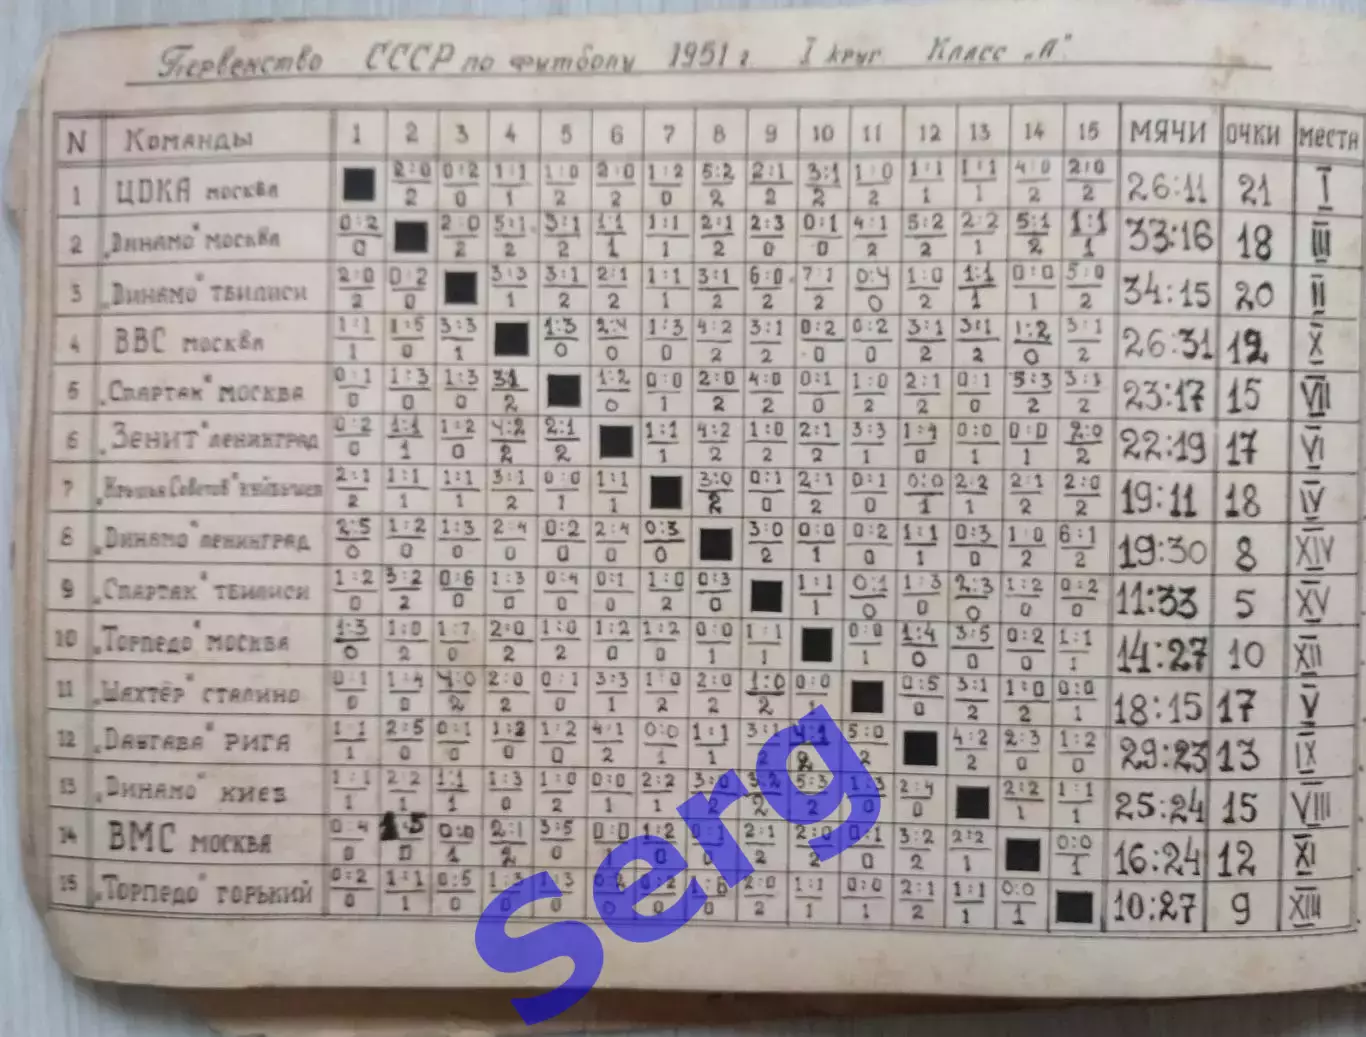 Первенство СССР по футболу 1951 г. I круг Класс „А"
N Команды 1 2 3 4 5 6 7 8 9 10 11 12 13 14 15 МЯЧИ ОЧКИ МЕСТА
1 ЦДКА МОСКВА 2:0 0:2 1:1 1:0 2:0 1:2 5:2 2:1 3:1 1:0 1:1 1:1 4:0 2:0 26:11 21 I
2 0 1 2 2 0 2 2 2 2 1 1 2 2
2 „Динамо" МОСКВА 0:2 2:0 5:1 3:1 1:1 1:1 2:1 2:3 0:1 4:1 5:2 2:2 5:1 1:1 33:16 18 III
0 2 2 2 1 1 2 0 0 2 2 1 2 1
3 „Динамо" ТБИЛИСИ 2:0 0:2 3:3 3:1 2:1 1:1 3:1 6:0 7:1 0:4 1:0 1:1 0:0 5:0 34:15 20 II
2 0 1 2 2 1 2 2 2 0 2 1 1 2
4 ВВС МОСКВА 1:1 1:5 3:3 1:3 2:4 1:3 4:2 3:1 0:2 0:2 3:1 3:1 1:2 3:1 26:31 12 X
1 0 1 0 0 0 2 2 0 0 2 2 0 2
5 „Спартак" МОСКВА 0:1 1:3 1:3 3:1 1:2 0:0 2:0 4:0 0:1 1:0 2:1 0:1 5:3 3:1 23:17 15 VII
0 0 0 2 0 1 2 2 0 2 2 0 2 2
6 „Зенит" ЛЕНИНГРАД 0:2 1:1 1:2 4:2 2:1 1:1 4:2 1:0 2:1 3:3 1:4 0:0 0:0 2:0 22:19 17 VI
0 1 0 2 2 1 2 2 2 1 0 1 1 2
7 „Крылья Советов" КУЙБЫШЕВ 2:1 1:1 1:1 3:1 0:0 1:1 3:0 0:1 2:1 0:1 0:0 2:2 2:1 2:0 19:11 18 IV
2 1 1 2 1 1 2 0 2 0 1 1 2 2
8 „Динамо" ЛЕНИНГРАД 2:5 1:2 1:3 2:4 0:2 2:4 0:3 3:0 0:0 0:2 1:1 0:3 1:0 6:1 19:30 8 XIV
0 0 0 0 0 0 0 2 1 0 1 0 2 2
9 „Спартак" ТБИЛИСИ 1:2 3:2 0:6 1:3 0:4 0:1 1:0 0:3 1:1 0:1 1:3 2:3 1:2 0:2 11:33 5 XV
0 2 0 0 0 0 2 0 1 0 0 0 0 0
10 „Торпедо" МОСКВА 1:3 1:0 1:7 2:0 1:0 1:2 1:2 0:0 1:1 0:0 1:4 3:5 0:2 1:1 14:27 10 XII
0 2 0 2 2 0 0 1 1 1 0 0 0 1
11 „Шахтёр" СТАЛИНО 0:1 1:4 4:0 2:0 0:1 3:3 1:0 2:0 1:0 0:0 0:5 3:1 1:0 0:0 18:15 17 V
0 0 2 2 0 1 2 2 2 1 0 2 2 1
12 „Даугава" РИГА 1:1 2:5 0:1 1:3 1:2 4:1 0:0 1:1 3:1 4:1 5:0 4:2 2:3 1:2 29:23 13 IX
1 0 0 0 0 2 1 1 2 2 2 2 0 0
13 „Динамо" КИЕВ 1:1 2:2 1:1 1:3 1:0 0:0 2:2 3:0 3:2 5:3 1:3 2:4 2:2 1:1 25:24 15 VIII
1 1 1 0 2 1 1 2 2 2 0 0 1 1
14 ВМС МОСКВА 0:4 1:5 0:0 2:1 3:5 0:0 1:2 0:1 2:1 2:0 0:1 3:2 2:2 0:0 16:24 12 XI
0 0 1 2 0 1 0 0 2 2 0 2 1 1
15 „Торпедо" ГОРЬКИЙ 0:2 1:1 0:5 1:3 1:3 0:2 0:2 1:6 2:0 1:1 0:0 2:1 1:1 0:0 10:27 9 XIII
0 1 0 0 0 0 0 0 2 1 1 2 1 1
Serg